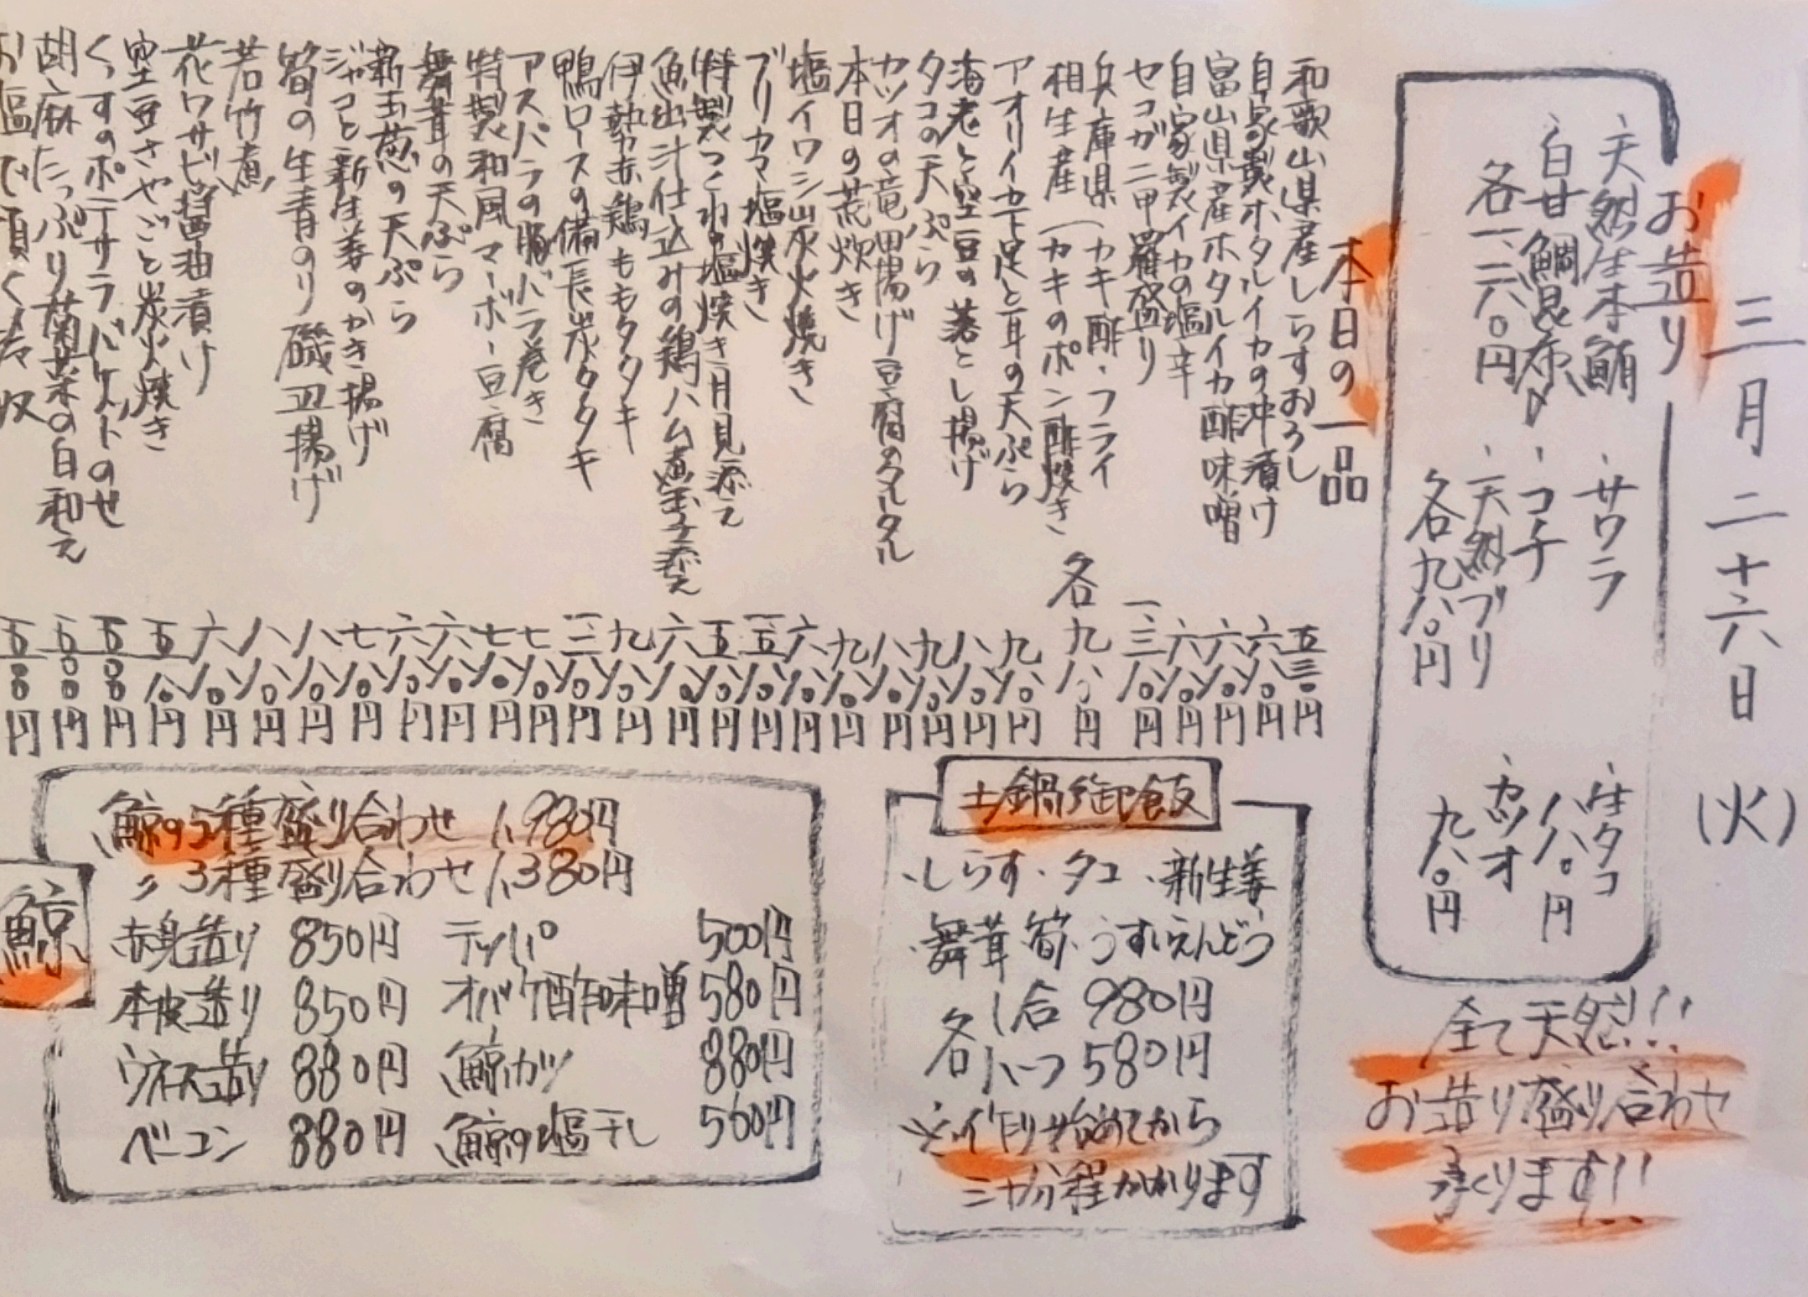 三月二十六日(火)
お造り
、天然生本鮪
、白甘鯛昆布〆
各一、二八〇円
、サワラ
、コチ
、天然ブリ
各九八〇円
、生タコ
八八〇円
、カツオ
九八〇円
全て天然!!
お造り盛り合わせ
承ります!!
本日の一品
和歌山県産しらすおろし 五三〇円
自家製ホタルイカの沖漬け 六八〇円
富山県産ホタルイカ酢味噌 六八〇円
自家製イカの塩辛 六八〇円
セコガニ甲羅盛り 一三八〇円
兵庫県(カキ酢・フライ
相生産(カキのポン酢焼き 各九八〇円
アオリイカ下足と耳の天ぷら 九八〇円
海老と空豆の落とし揚げ 八八〇円
タコの天ぷら 九八〇円
カツオの竜田揚げ豆腐のタルタル 八八〇円
本日の荒炊き 九八〇円
塩イワシ炭火焼き 六八〇円
ブリカマ塩焼き
特製つくねの塩焼き月見添え 五八〇円
魚出汁仕込みの鶏ハム煮玉子添え 六八〇円
伊勢赤鶏ももタタキ 九八〇円
鴨ロースの備長炭タタキ
アスパラの豚バラ巻き 七八〇円
特製和風マーボー豆腐 七八〇円
舞茸の天ぷら 六八〇円
新玉葱の天ぷら 六八〇円
ジャコと新生姜のかき揚げ 七八〇円
筍の生青のり磯辺揚げ 八八〇円
若竹煮 八八〇円
花ワサビ醤油漬け 六八〇円
空豆さやごと炭火焼き 五八〇円
くっすのポテサラバケットのせ 五八〇円
胡麻たっぷり菊菜の白和え 五〇〇円
お塩で頂く冷奴 五〇〇円
土鍋御飯
、しらす、タコ、新生姜
、舞茸、筍、うすいえんどう
各 1合 980円
ハーフ 580円
※作り始めてから
三十分程かかります
鯨
鯨の5種盛り合わせ 1,980円
〃 3種盛り合わせ 1,380円
赤身造り 850円 テッパ 500円
本皮造り 850円 オバケ酢味噌 580円
ウネス造り 880円 鯨カツ 880円
ベーコン 880円 鯨の塩干し 500円